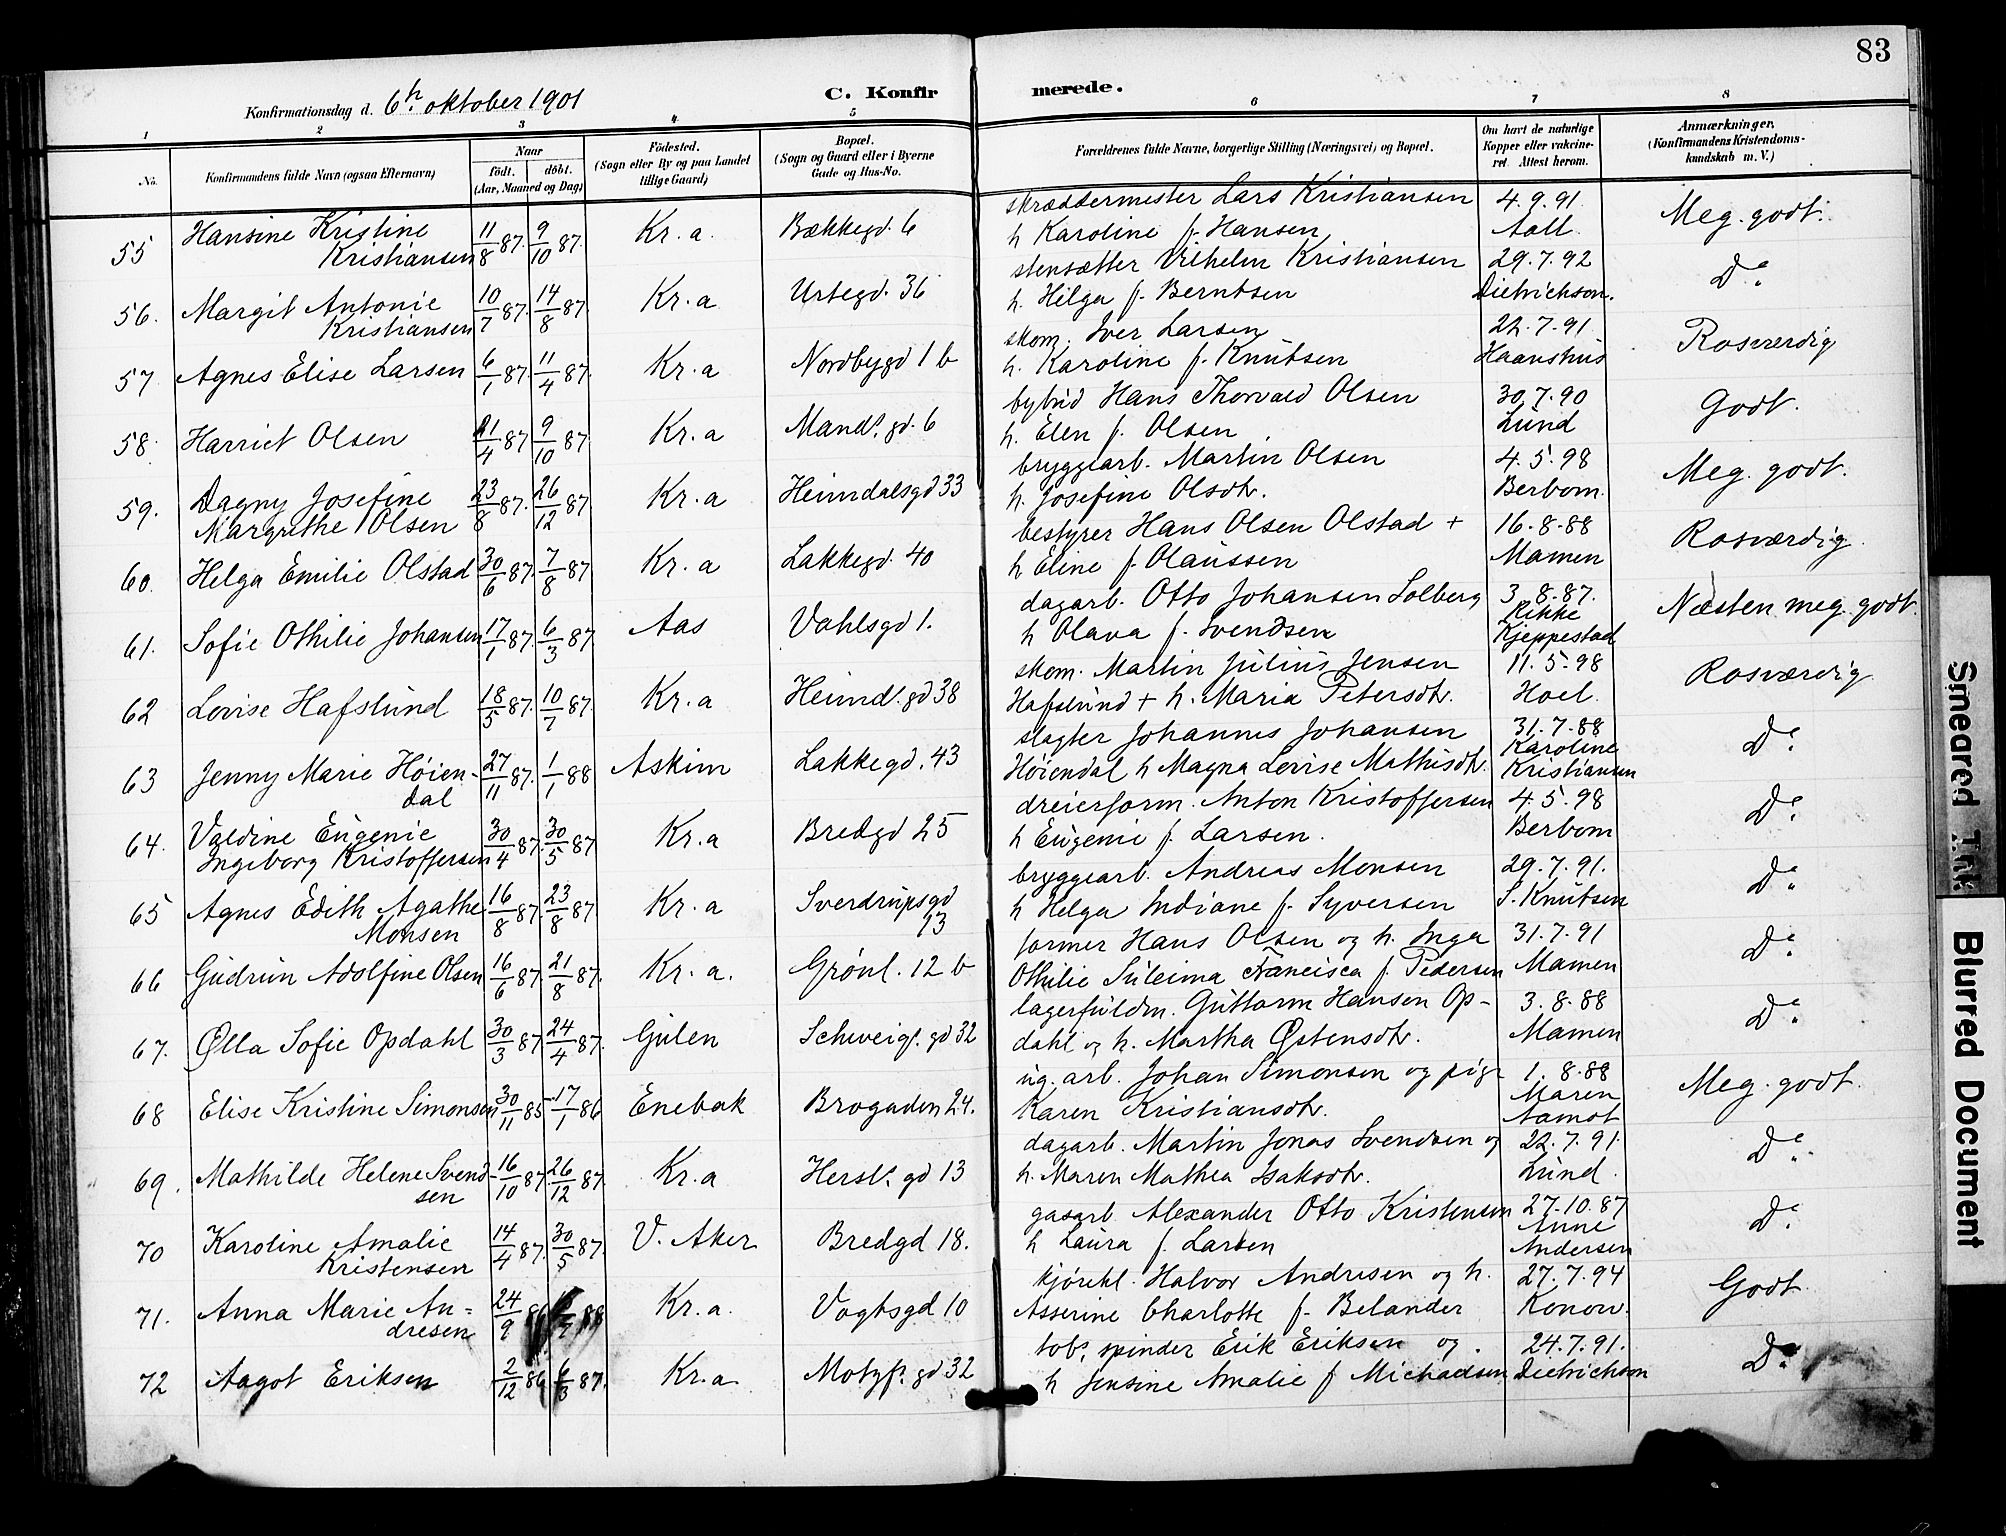 83
Konfirmationsdag d. 6h oktober 1901
C. Konfirmerede.
1 2 3 4 5 6 7 8
No.
Konfirmandens fulde Navn (ogsaa Efternavn)
Naar
født. døbt.
(Aar, Maaned og Dag)
Fødested.
(Sogn eller By og paa Landet
tillige Gaard)
Bopæl.
(Sogn og Gaard eller i Byerne
Gade og Hus-No.
Forældrenes fulde Navne, borgerlige Stilling (Næringsvei) og Bopæl.
Om havt de naturlige
Kopper eller vakcine-
ret. Attest herom.
Anmærkninger.
(Konfirmandens Kristendoms-
kundskab m. V.)
55 Hansine Kristine Kristiansen 11/8 87. 9/10 87. Kr.a. Bækkegd. 6 skræddermester Lars Kristiansen 4.9.91 Meg. godt.
h Karoline f. Hansen Aall.
56. Margit Antonie Kristiansen 10/7 87. 14/8 87. Kr.a Urtegd. 36 stensætter Vilhelm Kristiansen 29.7.92 Do.
h. Hilga f. Berntsen Dietrichson.
57. Agnes Elise Larsen 6/1 87. 11/4 87. Kr.a Nordbygd 1 b skom. Iver Larsen 22.7.91 Rosværdig
h. Karoline f. Knutsen Haanshus
58. Harriet Olsen 21/4 87 9/10 87 Kr.a Mands. gd. 6 bybud Hans Thorvald Olsen 30.7.90 Godt.
h. Elen f. Olsen Lund
59. Dagny Josefine Margrethe Olsen 23/8 87. 26/12 87 Kr.a Heimdalsgd 33 bryggearb. Martin Olsen 4.5.98 Meg. godt.
h. Josefine Olsdtr. Berbom.
60. Helga Emilie Olstad 30/6 87. 7/8 87 Kr.a Lakkegd. 40 bestyrer Hans Olsen Olstad + 16.8.88 Rosværdig.
h Eline f. Olaussen Mamen
61. Sofie Othilie Johansen 17/1 87. 6/3 87 Aas Vahlsgd 1. dagarb. Otto Johansen Solberg 3.8.87. Næsten meg. godt.
h Olava f. Svendsen Rikke
Kjeppestad
62 Lovise Hafslund 18/5 87. 10/7 87. Kr.a Heimd. gd 38 skom. Martin Julius Jensen 11.5.98 Rosværdig
Hafslund + h. Maria Petersdtr. Hoel.
63 Jenny Marie Høiendal 27/11 87. 1/1 88 Askim Lakkegd. 43 slagter Johannes Johansen 31.7.88 Do.
Høiendal h Magna Lovise Mathisdtr. Karoline
Kristiansen
64. Valdine Eugenie Ingeborg Kristoffersen 30/4 87. 30/5 87. Kr.a Bredgd 25 dreierform. Anton Kristoffersen 4.5.98 Do.
h Eugenie f. Larsen. Berbom
65 Agnes Edith Agathe Monsen 16/8 87. 23/8 87. Kr.a Sverdrupsgd 13 bryggearb. Andreas Monsen 29.7.91. Do.
h Helga Indiane f. Syversen S. Knutsen
66 Gudrun Adolfine Olsen 16/6 87. 21/8 87. Kr.a. Grønl. 12 b former Hans Olsen og h. Inga 31.7.91 Do.
Othilie Suleima Francisca f. Pedersen Mamen
67. Olla Sofie Opdahl 30/3 87. 24/4 87. Gulen Schweig. gd 32 lagerfuldm. Guttorm Hansen Op- 3.8.88 Do.
dahl og h. Martha Østensdtr. Mamen
68 Elise Kristine Simonsen 30/11 85 17/1 86 Enebak Brogaden 24. ug. arb. Johan Simonsen og pige 1.8.88 Meg. godt.
Karen Kristiansdtr. Maren
Aamot
69. Mathilde Helene Svendsen 16/10 87. 26/12 87. Kr.a Hersl. gd 13 dagarb. Martin Jonas Svendsen og 22.7.91. Do.
h. Maren Mathea Isaksdtr. Lund.
70 Karoline Amalie Kristensen 14/4 87. 30/5 87. V. Aker Bredgd 18. gasarb. Alexander Otto Kristensen 27.10.87 Do.
h Laura f. Larsen Anne
Andersen
71. Anna Marie Andresen 24/9 86 88 Kr.a. Vogtsgd 10 kjørekl. Halvor Andresen og h. 27.7.94 Godt.
Asserine Charlotte f. Belander Konow.
72 Aagot Eriksen 2/12 86 6/3 87. Kr.a. Motzf. gd 32 tob. spinder Erik Eriksen og 24.7.91. Do.
h Jensine Amalie f Michaelsen Dietrichson
Smeared Ink
Blurred Document